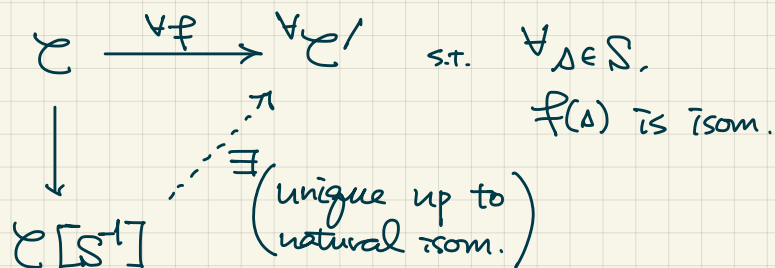 𝒞 ∀f ∀𝒞′ s.t. ∀s∈S,
f(s) is isom.
∃ (unique up to
natural isom.)
𝒞[S⁻¹]